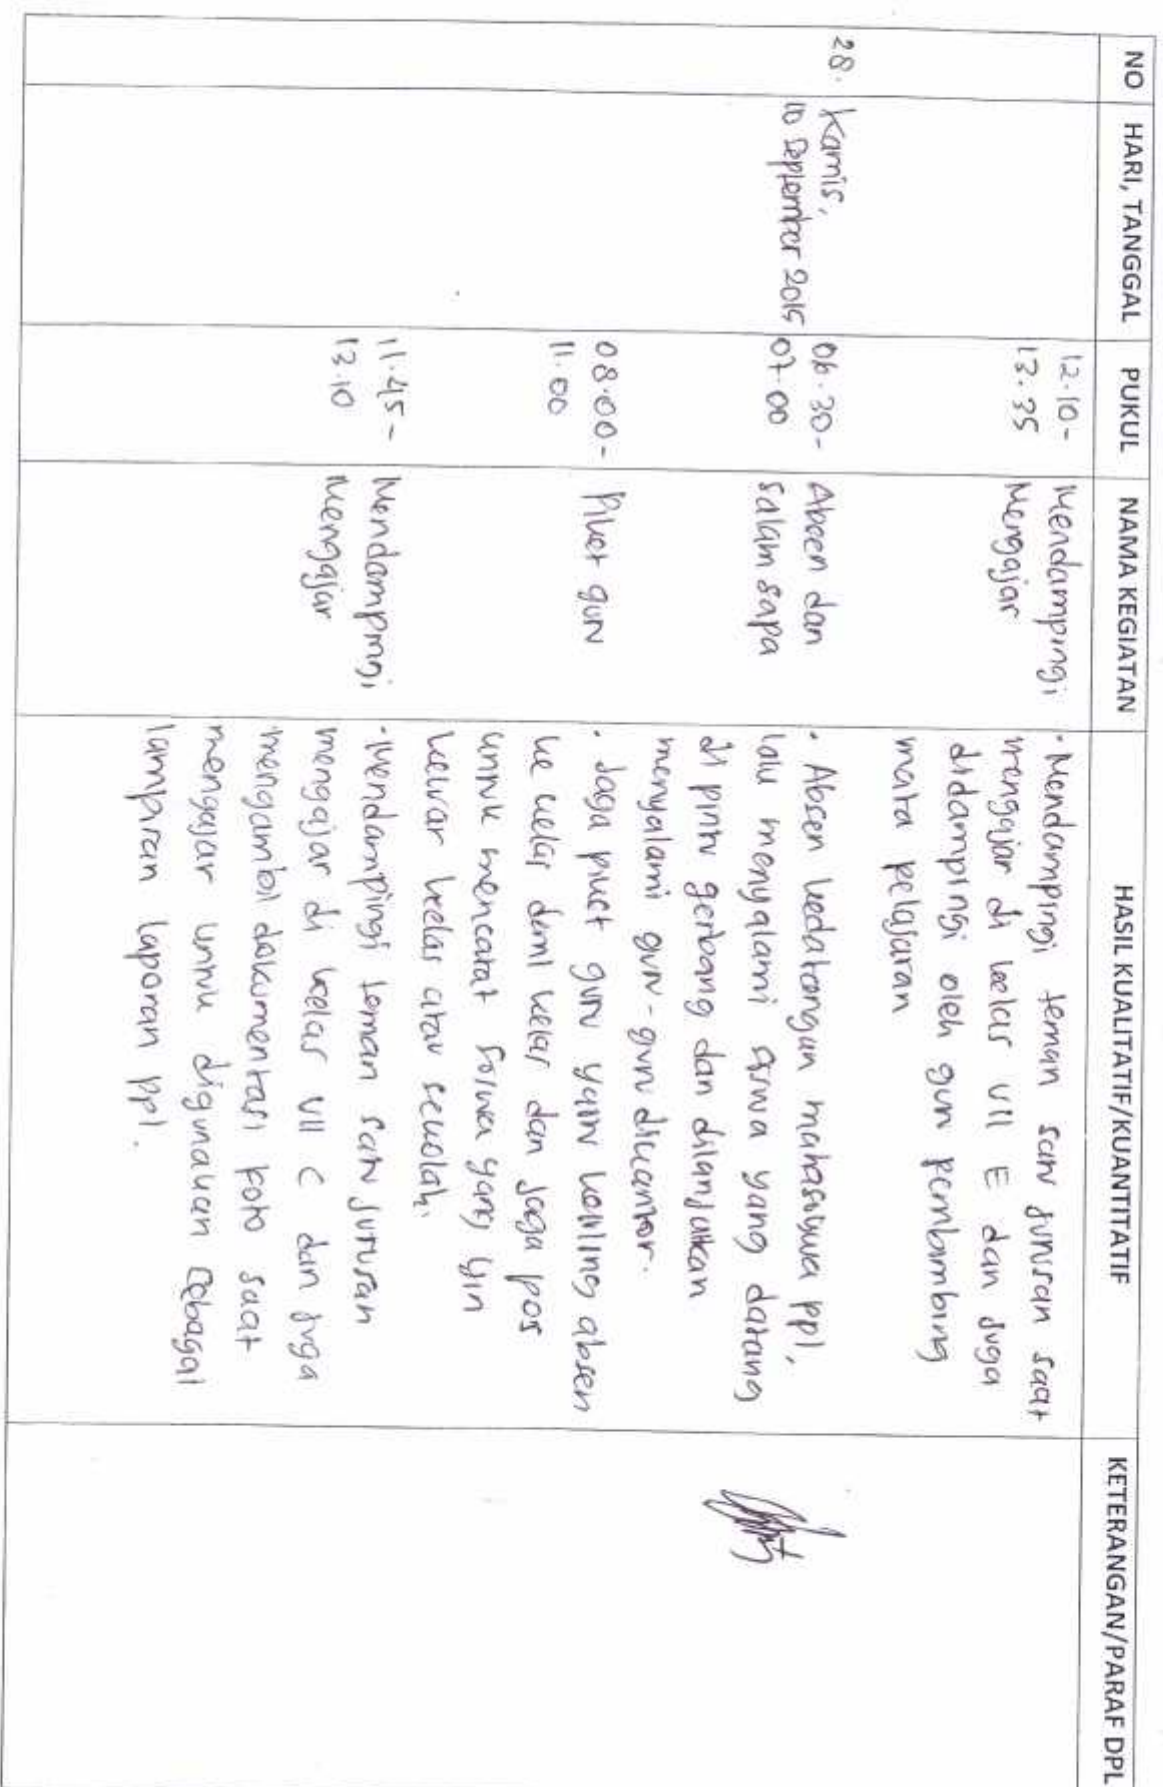 NO HARI, TANGGAL PUKUL NAMA KEGIATAN HASIL KUALITATIF/KUANTITATIF KETERANGAN/PARAF DPL
12.10- Mendampingi • Mendampingi teman satu jurusan saat
13.35 Mengajar mengajar di kelas VII E dan juga
didampingi oleh guru pembimbing
mata pelajaran
28. Kamis, 06.30- Absen dan • Absen kedatangan mahasiswa ppl,
10 September 2015 07.00 salam sapa lalu menyalami siswa yang datang
di pintu gerbang dan dilanjutkan
menyalami guru-guru dikantor.
08.00- Piket guru • Jaga piket guru yaitu keliling absen
11.00 ke kelas demi kelas dan jaga pos
untuk mencatat siswa yang ijin
keluar kelas atau sekolah.
11.45- Mendampingi • Mendampingi teman satu jurusan
13.10 Mengajar mengajar di kelas VII C dan juga
mengambil dokumentasi foto saat
mengajar untuk digunakan sebagai
lampiran laporan ppl.